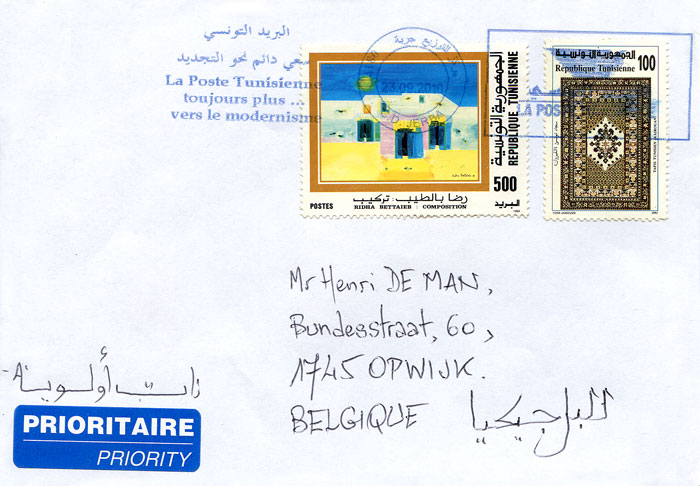 البريد التونسي
سعي دائم نحو التجديد
La Poste Tunisienne
toujours plus ...
vers le modernisme
مركز التوزيع جربة
23.09.2010
C.D. JERBA
الجمهورية التونسية
REPUBLIQUE TUNISIENNE
500
البريد
رضا بالطيب : تركيب
POSTES
RIDHA BETTAIEB : COMPOSITION
الجمهورية التونسية
République Tunisienne
100
LA POS
Mr Henri DE MAN,
Bundesstraat, 60,
1745 OPWIJK.
BELGIQUE البلجيكيا
ذات أولوية -A-
PRIORITAIRE
PRIORITY